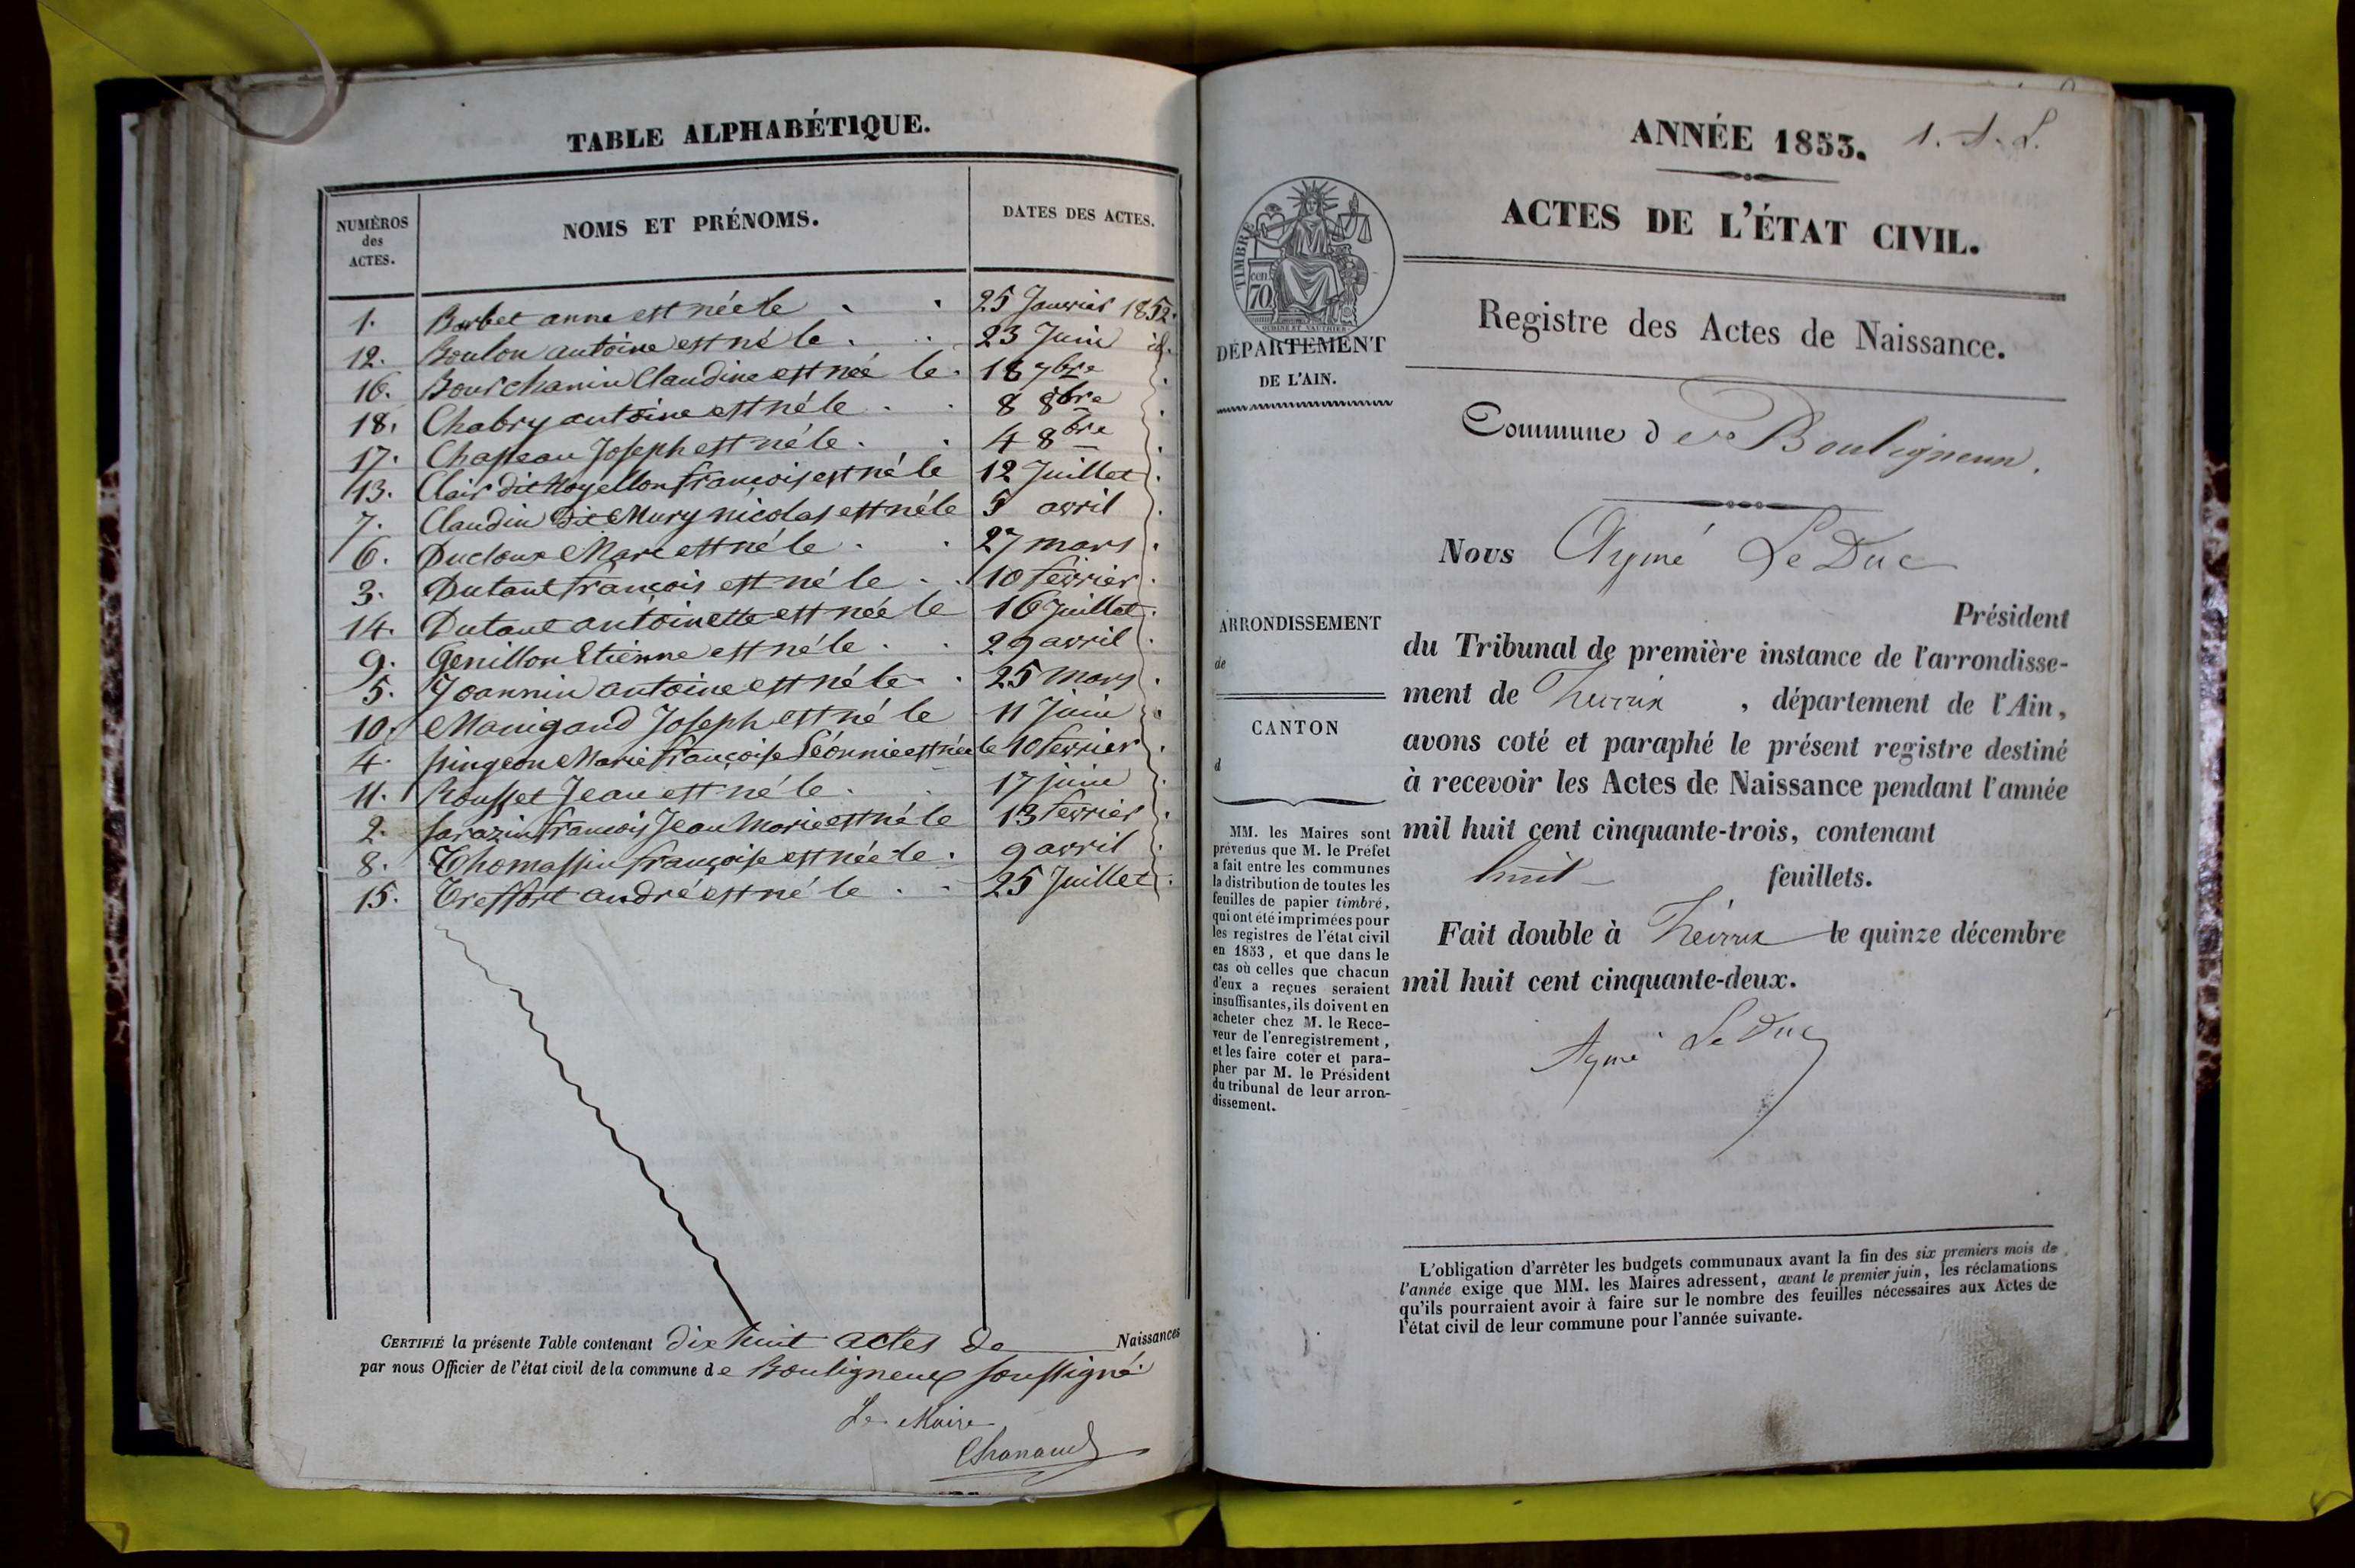 TABLE ALPHABÉTIQUE.
NUMÉROS des ACTES. NOMS ET PRÉNOMS. DATES DES ACTES.
1. Borbet anne est née le . . 25 Janvier 1852.
12. Boulon antoine est né le . . 23 Juin id.
16. Bourchanin Claudine est née le . 18 7bre
18. Chabry antoine est né le . . 8 8bre
17. Chasseau Joseph est né le . . 4 8bre
13. Clair dit Moyellon françois est né le 12 Juillet
7. Claudin dit Mury nicolas est né le 5 avril
6. Ducloux Marc est né le . . 27 mars
3. Dutant françois est né le . . 10 février
14. Dutant antoinette est née le 16 Juillet
9. Genillon Etienne est né le . . 29 avril
5. Joannin antoine est né le . . 25 mars
10. Manigand Joseph est né le 11 Juin
4. pingeon Marie françoise Léonnie est née le 10 fevrier
11. Rousset Jean est né le . . 17 juin
2. sarazin françois Jean Marie est né le 13 fevrier
8. Thomassin françoise est née le . 9 avril
15. Treffort andré est né le . . 25 Juillet
CERTIFIÉ la présente Table contenant dix huit actes de Naissances
par nous Officier de l'état civil de la commune de Bouligneux soussigné.
Le Maire
Chanaud
ANNÉE 1853. 1. A. L.
ACTES DE L'ÉTAT CIVIL.
TIMBRE
70 cen
OUDINE ET GAUTHIER
Registre des Actes de Naissance.
DÉPARTEMENT
DE L'AIN.
Commune de Bouligneux.
Nous Aymé Le Duc
Président
ARRONDISSEMENT
de
CANTON
d
du Tribunal de première instance de l'arrondisse-
ment de Trévoux , département de l'Ain,
avons coté et paraphé le présent registre destiné
à recevoir les Actes de Naissance pendant l'année
mil huit cent cinquante-trois, contenant
huit feuillets.
Fait double à Trévoux le quinze décembre
mil huit cent cinquante-deux.
Aymé Le Duc
MM. les Maires sont
prévenus que M. le Préfet
a fait entre les communes
la distribution de toutes les
feuilles de papier timbré,
qui ont été imprimées pour
les registres de l'état civil
en 1853, et que dans le
cas où celles que chacun
d'eux a reçues seraient
insuffisantes, ils doivent en
acheter chez M. le Rece-
veur de l'enregistrement,
et les faire coter et para-
pher par M. le Président
du tribunal de leur arron-
dissement.
L'obligation d'arrêter les budgets communaux avant la fin des six premiers mois de
l'année exige que MM. les Maires adressent, avant le premier juin, les réclamations
qu'ils pourraient avoir à faire sur le nombre des feuilles nécessaires aux Actes de
l'état civil de leur commune pour l'année suivante.